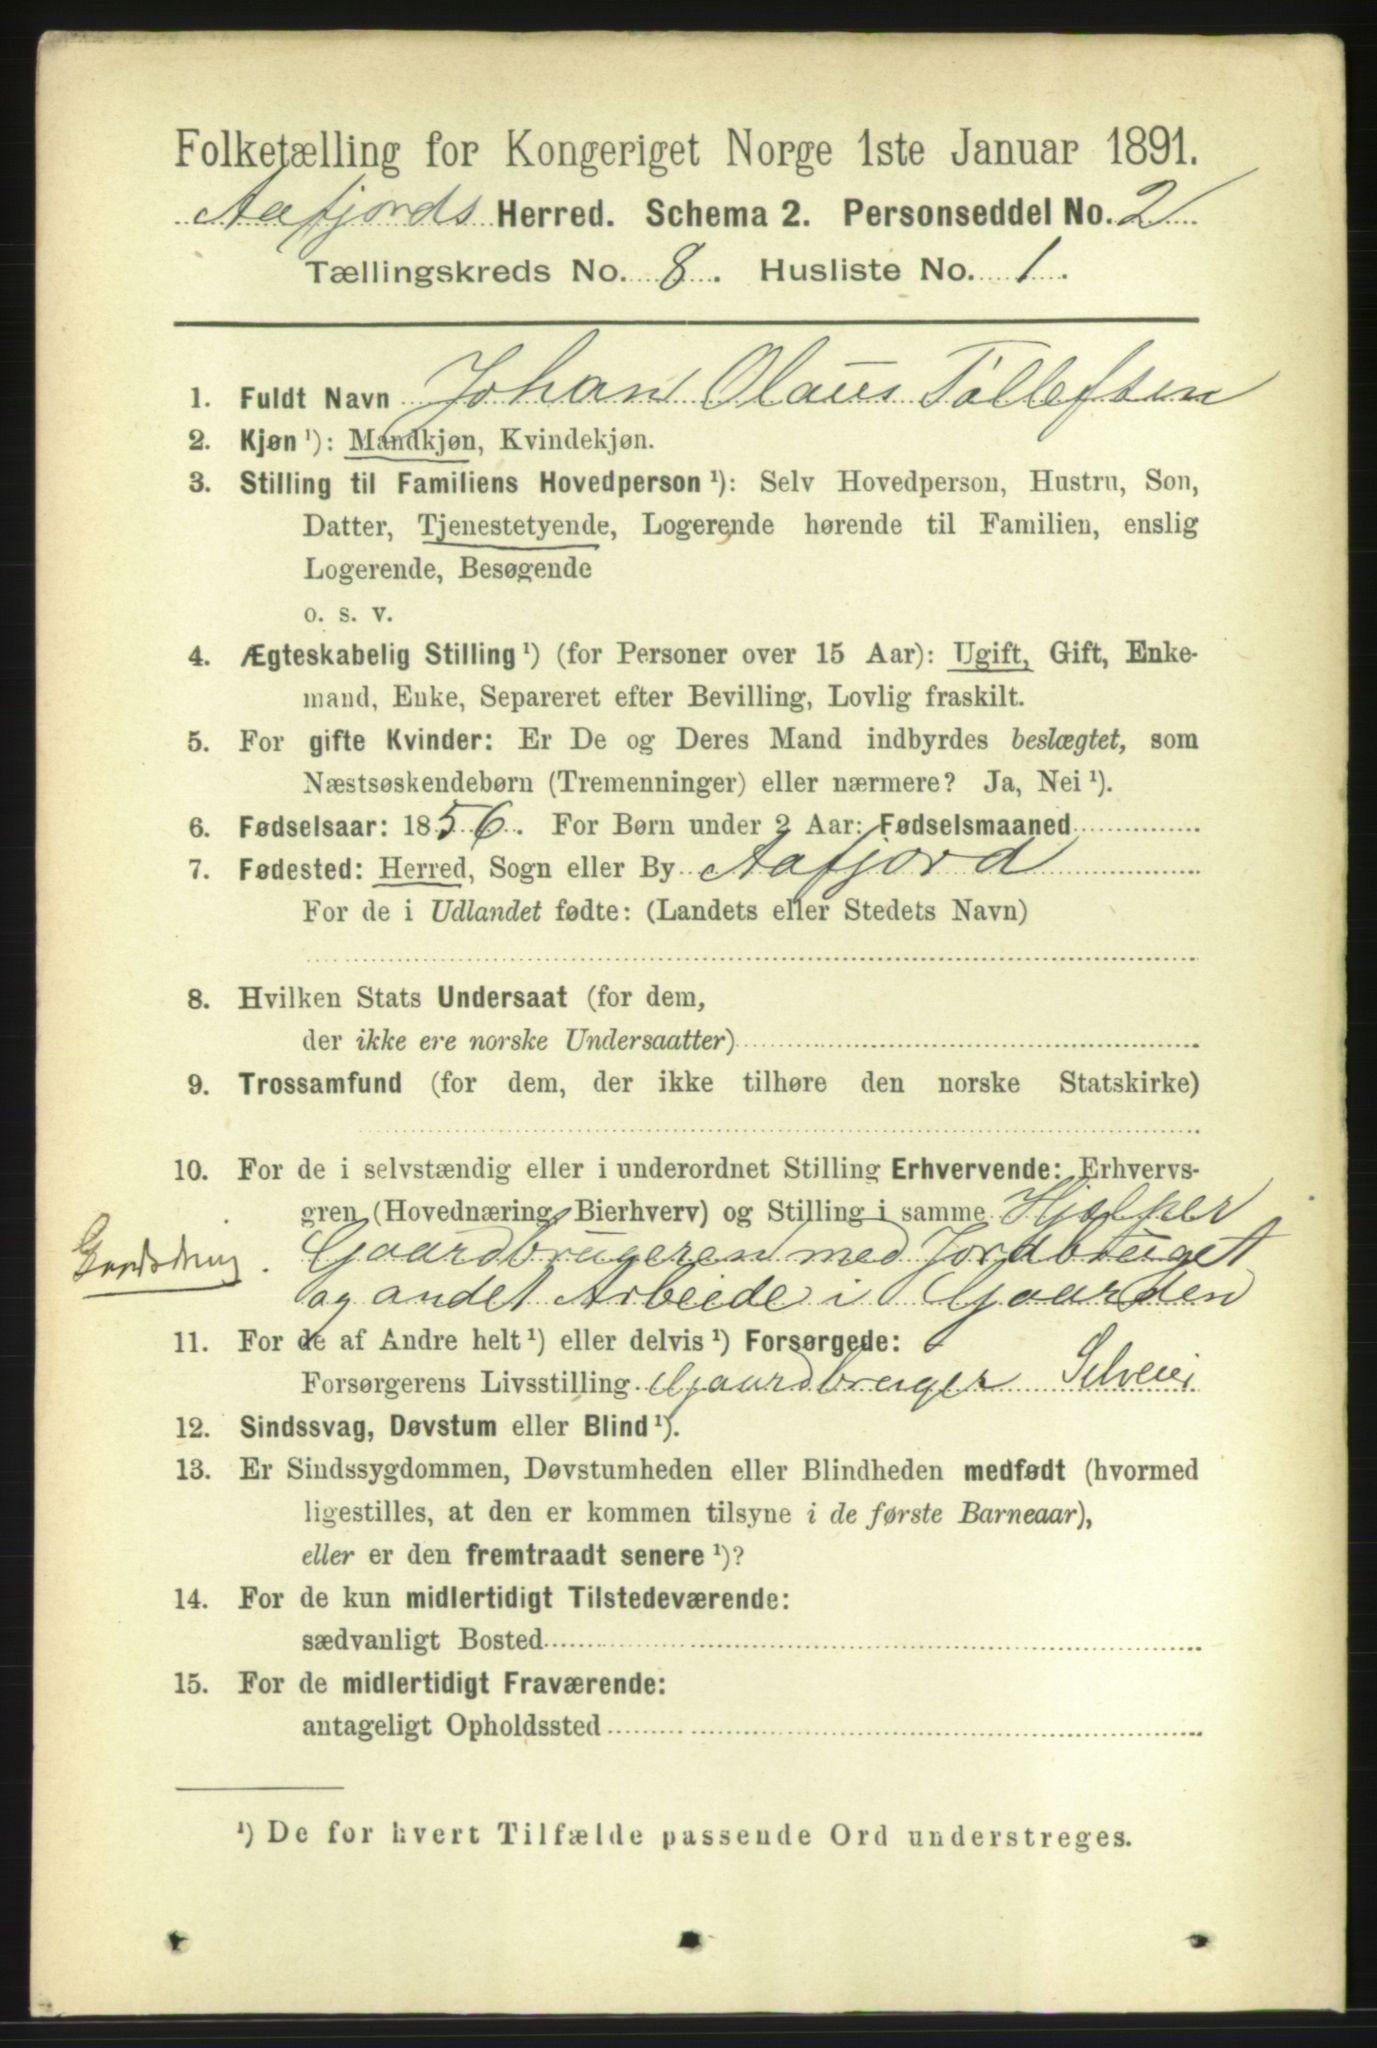 Folketælling for Kongeriget Norge 1ste Januar 1891.
Aafjords Herred. Schema 2. Personseddel No. 2
Tællingskreds No. 8. Husliste No. 1.
1. Fuldt Navn Johan Olaus Tøllefsen
2. Kjøn ¹): Mandkjøn, Kvindekjøn.
3. Stilling til Familiens Hovedperson ¹): Selv Hovedperson, Hustru, Søn,
Datter, Tjenestetyende, Logerende hørende til Familien, enslig
Logerende, Besøgende
o. s. v.
4. Ægteskabelig Stilling ¹) (for Personer over 15 Aar): Ugift, Gift, Enke-
mand, Enke, Separeret efter Bevilling, Lovlig fraskilt.
5. For gifte Kvinder: Er De og Deres Mand indbyrdes beslægtet, som
Næstsøskendebørn (Tremenninger) eller nærmere? Ja, Nei ¹).
6. Fødselsaar: 1856. For Børn under 2 Aar: Fødselsmaaned
7. Fødested: Herred, Sogn eller By Aafjord
For de i Udlandet fødte: (Landets eller Stedets Navn)
8. Hvilken Stats Undersaat (for dem,
der ikke ere norske Undersaatter)
9. Trossamfund (for dem, der ikke tilhøre den norske Statskirke)
10. For de i selvstændig eller i underordnet Stilling Erhvervende: Erhvervs-
gren (Hovednæring, Bierhverv) og Stilling i samme Hjælper
Gaardbrugeren med Jordbruget
og andet Arbeide i Gaarden
11. For de af Andre helt ¹) eller delvis ¹) Forsørgede:
Forsørgerens Livsstilling Gaardbruger
12. Sindssvag, Døvstum eller Blind ¹).
13. Er Sindssygdommen, Døvstumheden eller Blindheden medfødt (hvormed
ligestilles, at den er kommen tilsyne i de første Barneaar),
eller er den fremtraadt senere ¹)?
14. For de kun midlertidigt Tilstedeværende:
sædvanligt Bosted
15. For de midlertidigt Fraværende:
antageligt Opholdssted
¹) De for hvert Tilfælde passende Ord understreges.